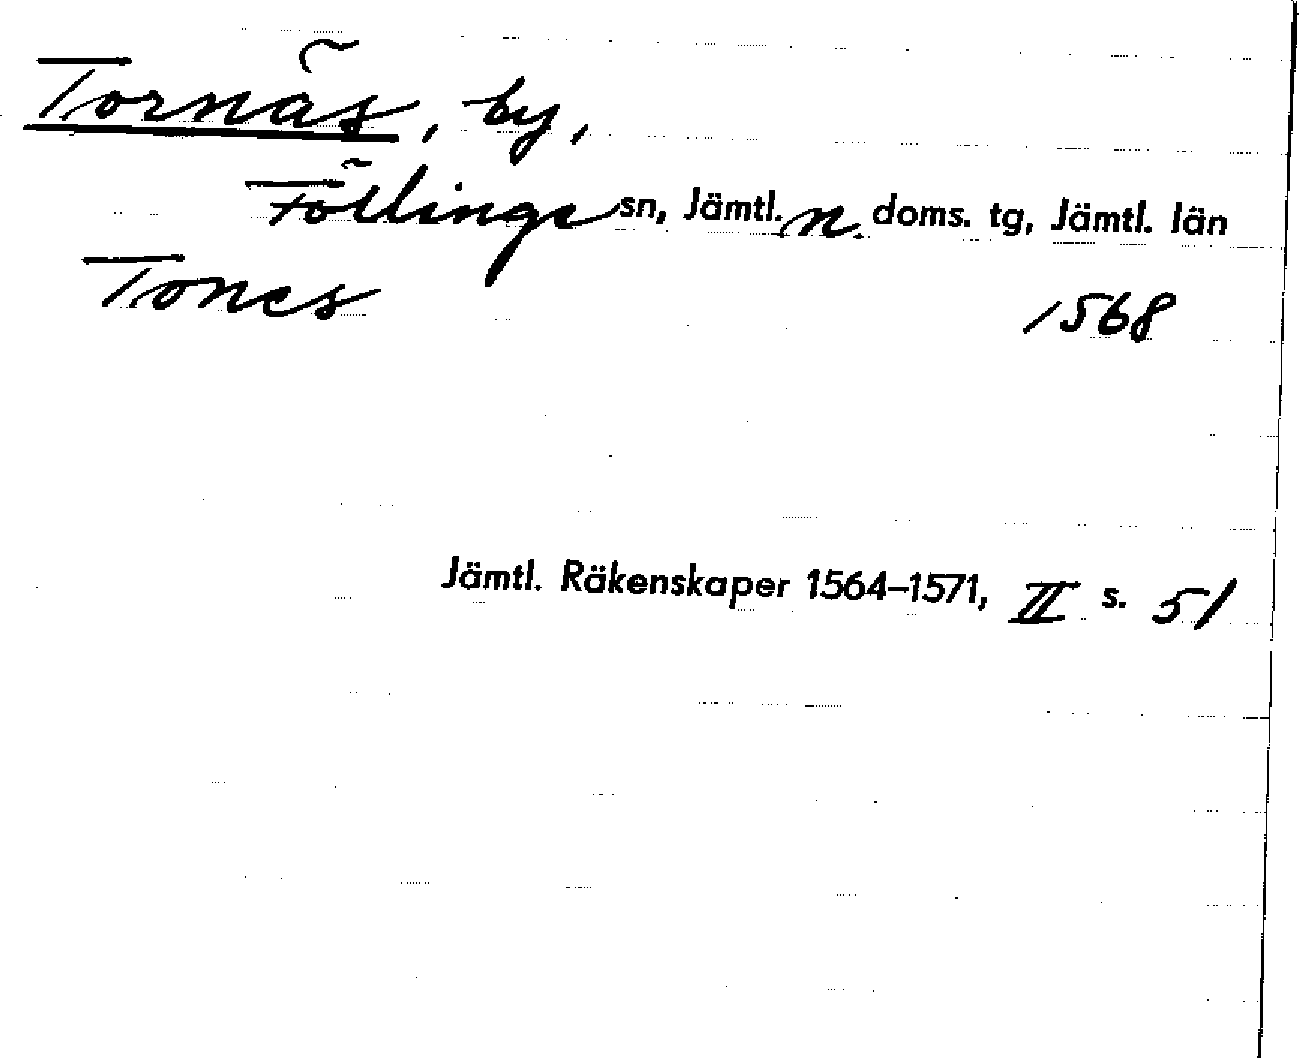 Tornäs, by,
Föllinge sn, Jämtl. n. doms. tg, Jämtl. län
Tones 1568
Jämtl. Räkenskaper 1564–1571, II s. 51